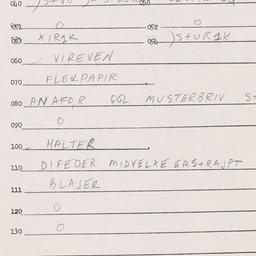 040
050
051 0 052 0
053 XIRJK 054 )STURJK
060 VIREVEN
070 FLEKPAPIR
080 ANAFO,R GGL MUSTERBRIV
090 0
100 HALTER
110 DIFEDER MIDVELKE ERSTRAJPT
111 BLAJER
120 0
130 0